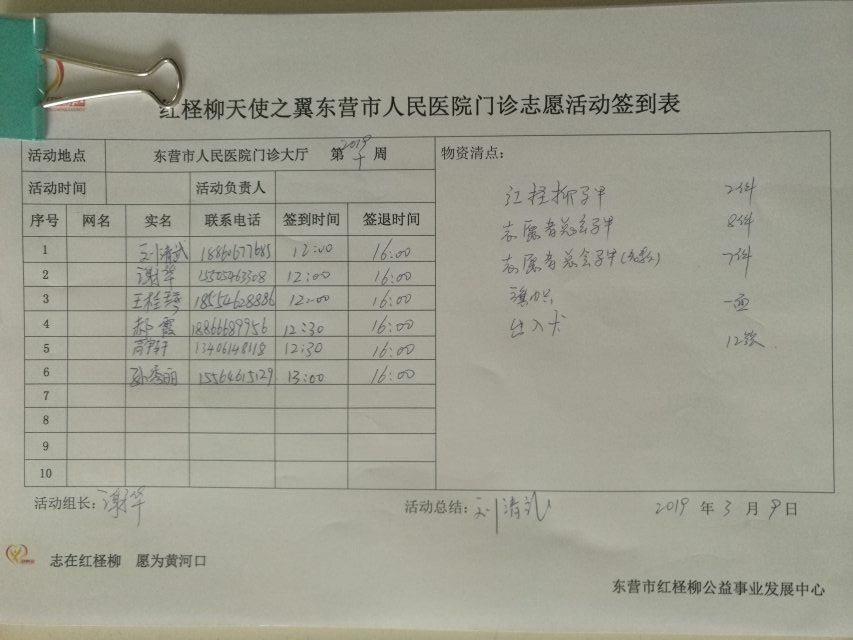 红柽柳天使之翼东营市人民医院门诊志愿活动签到表
活动地点 东营市人民医院门诊大厅 第 2019 十 周
活动时间 活动负责人
序号 网名 实名 联系电话 签到时间 签退时间
1 刘清武 18860677685 12:00 16:00
2 谢华 12:00 16:00
3 18554628886 12:00 16:00
4 郝霞 18866689956 12:30 16:00
5 13406148118 12:30 16:00
6 孙秀丽 15564615129 13:00 16:00
7
8
9
10
物资清点:
红柽柳马甲 2件
志愿者总会马甲 8件
志愿者总会马甲 7件
旗帜 一面
出入卡 12
活动组长:谢华
活动总结:刘清武
2019 年 3 月 9 日
志在红柽柳 愿为黄河口
东营市红柽柳公益事业发展中心